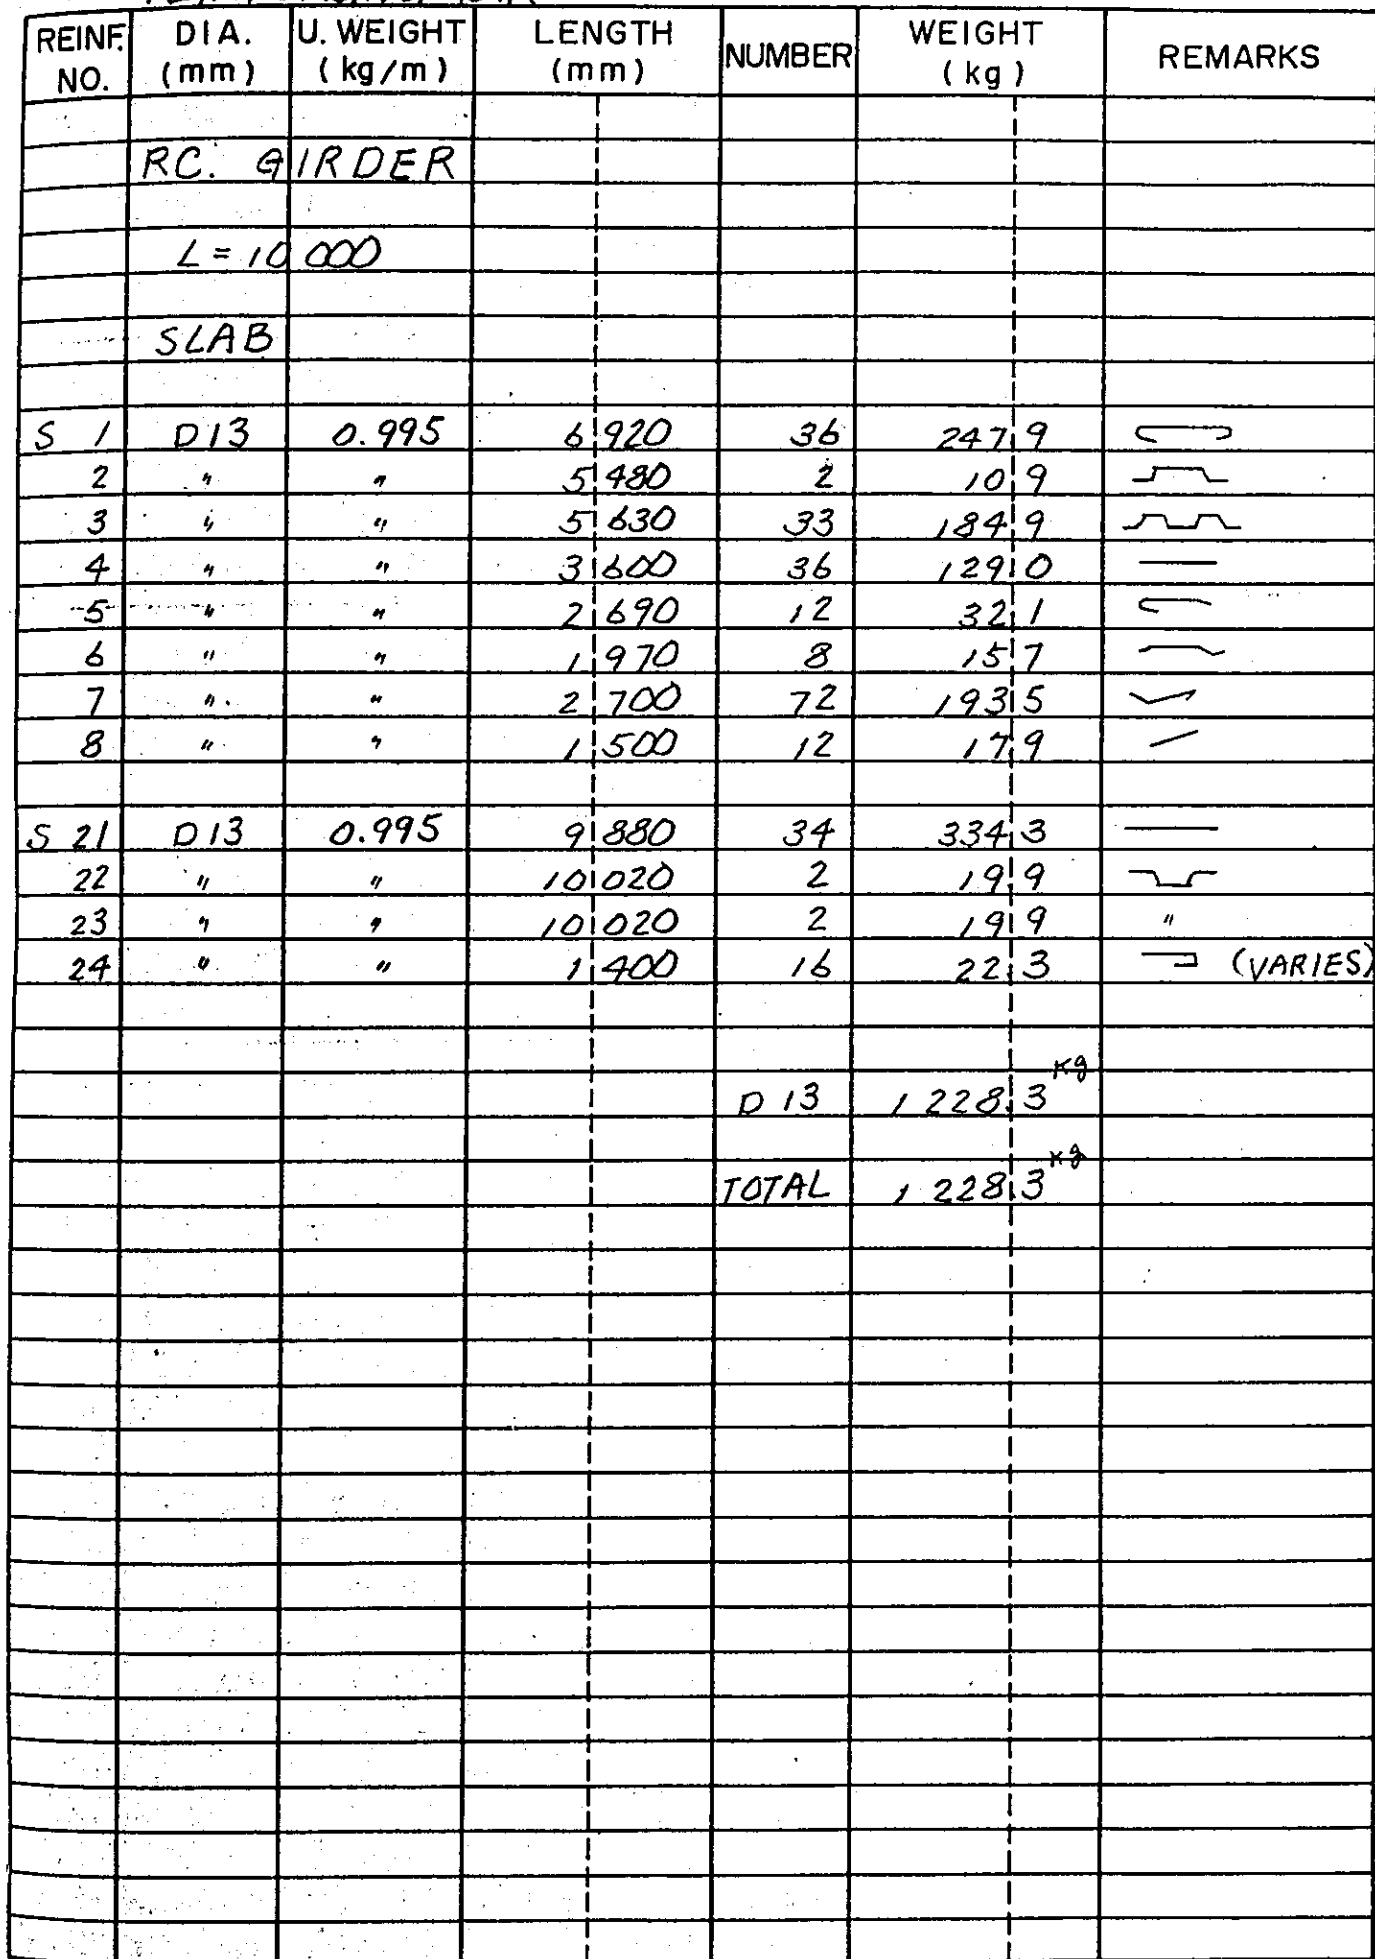 REINF. NO. DIA. (mm) U. WEIGHT (kg/m) LENGTH (mm) NUMBER WEIGHT (kg) REMARKS
RC. GIRDER
L = 10 000
SLAB
S 1 D13 0.995 6 920 36 247.9
2 " " 5 480 2 10.9
3 " " 5 630 33 184.9
4 " " 3 600 36 129.0
5 " " 2 690 12 32.1
6 " " 1 970 8 15.7
7 " " 2 700 72 193.5
8 " " 1 500 12 17.9
S 21 D13 0.995 9 880 34 334.3
22 " " 10 020 2 19.9
23 " " 10 020 2 19.9 "
24 " " 1 400 16 22.3 (VARIES)
D 13 1 228.3 kg
TOTAL 1 228.3 kg